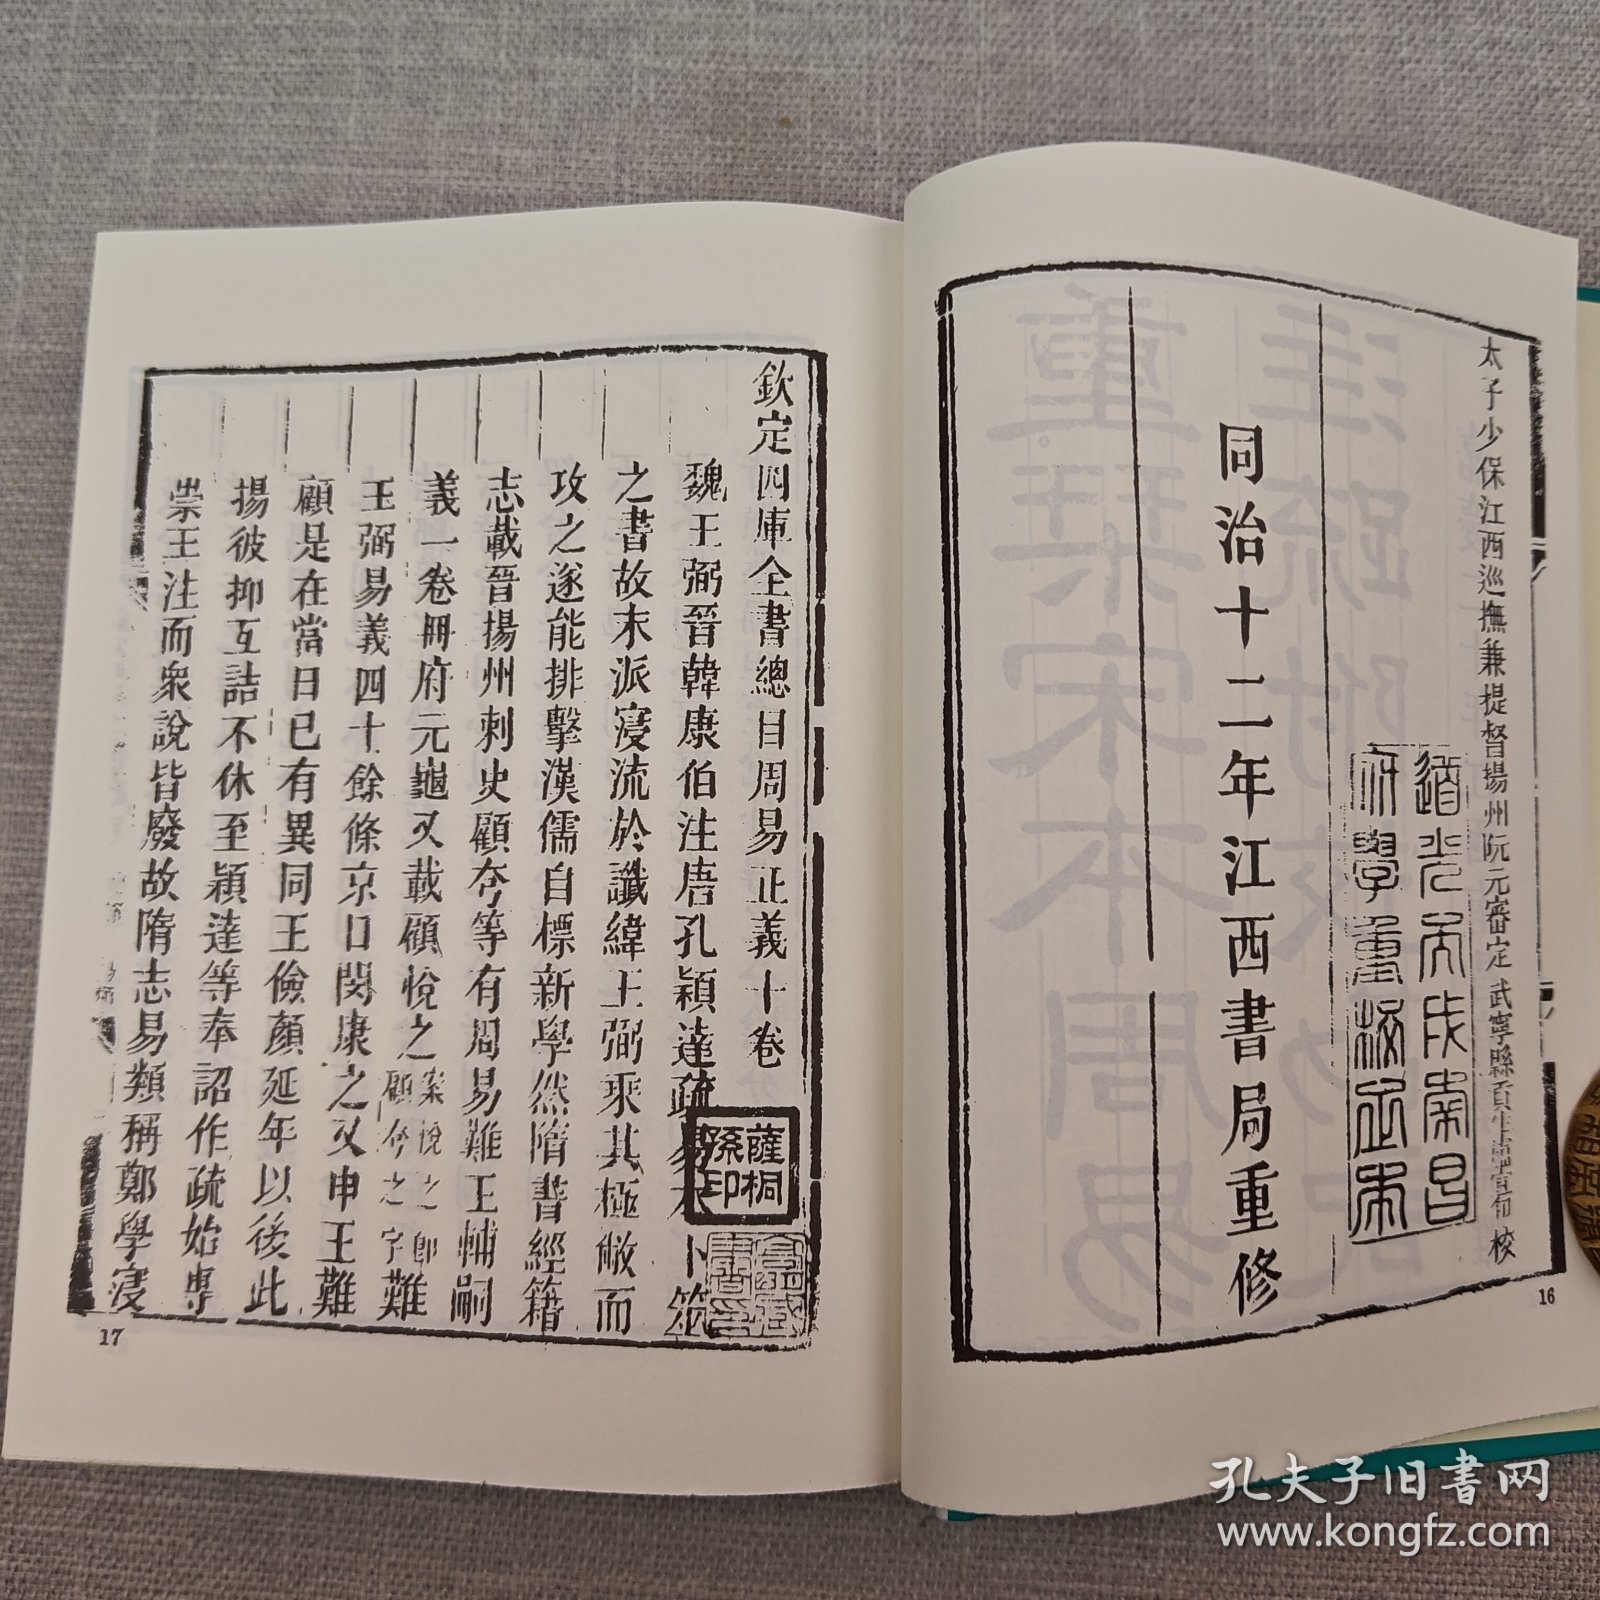 太子少保江西巡撫兼提督揚州阮元審定武寧縣貢生盧宣旬校
道光六成南昌
府學重校本
同治十二年江西書局重修
16
欽定四庫全書總目周易正義十卷
魏王弼晉韓康伯注唐孔穎達疏易本卜筮
之書故末派寖流於讖緯王弼乘其極敝而
攻之遂能排擊漢儒自標新學然隋書經籍
志載晉揚州刺史顧夷等有周易難王輔嗣
義一卷冊府元龜又載顧悅之案悅之卽顧夷之字難
王弼易義四十餘條京口閔康之又申王難
顧是在當日已有異同王儉顏延年以後此
揚彼抑互詰不休至穎達等奉詔作疏始專
崇王注而衆說皆廢故隋志易類稱鄭學寖
薩桐
孫印
17
孔夫子旧书网
www.kongfz.com